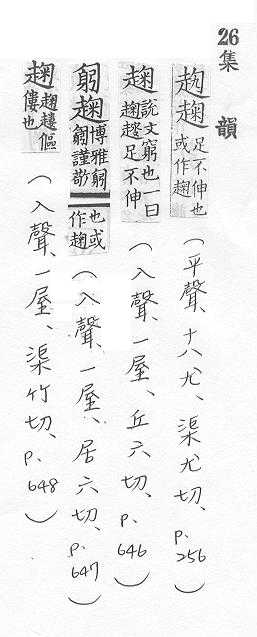 26集 韻
趜 足不伸也 或作趜 (平聲、十八尤、渠尤切、p.256)
趜 說文窮也一曰 趜足不伸 (入聲、一屋、丘六切、p.646)
趜 博雅 謹敬也或作趜 (入聲、一屋、居六切、p.647)
趜 趜傴僂也 (入聲、一屋、渠竹切、p.648)